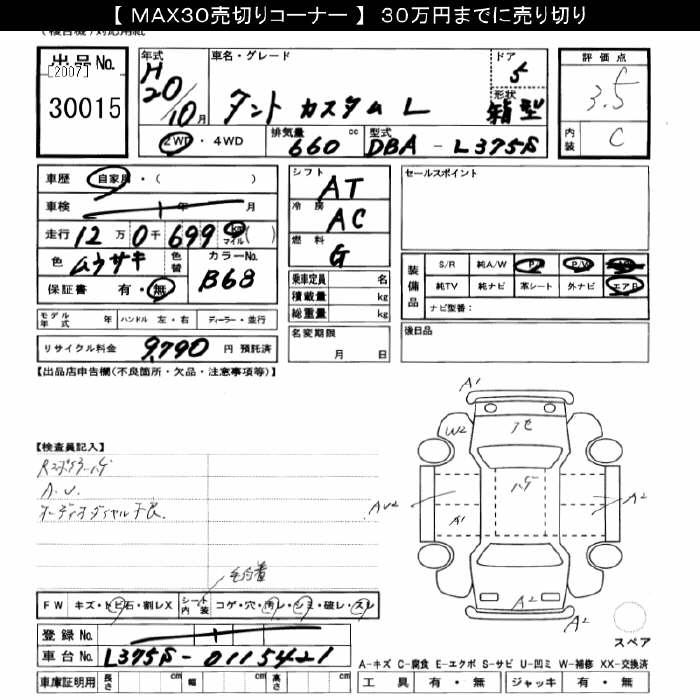 【 MAX30売切りコーナー 】 30万円までに売り切り
出品No.
[2007]
30015
年式
H20/10月
車名・グレード
タント カスタム L
ドア
5
形状
箱型
評価点
3.5
内装
C
2WD・4WD
排気量 660 cc
型式 DBA - L375S
車歴 自家用・( )
車検 年 月
走行 12万 0千 699 km マイル ( )
色 ムラサキ 色替
カラーNo. B68
保証書 有・無
モデル年式 年 ハンドル 左・右 ディーラー・並行
リサイクル料金 9,790 円 預託済
シフト AT
冷房 AC
燃料 G
乗車定員 名
積載量 kg
総重量 kg
名変期限
月 日
セールスポイント
装備品
S/R 純A/W P/S P/W
純TV 純ナビ 革シート 外ナビ エアB
ナビ型番：
後日品
【出品店申告欄(不良箇所・欠品・注意事項等)】
【検査員記入】
A.U.
オーディオダイヤル不良.
毛均着
FW キズ・トビ石・割レX シート内装 コゲ・穴・汚レ・シミ・破レ・スレ
登録No.
車台No. L375S-0115421
車庫証明用 長さ cm 幅 cm 高さ cm
A1
W2
アセ
ハゲ
AU2
A1
A2
A2
A2
スペア
A-キズ C-腐食 E-エクボ S-サビ U-凹ミ W-補修 XX-交換済
工具 有・無 ジャッキ 有・無